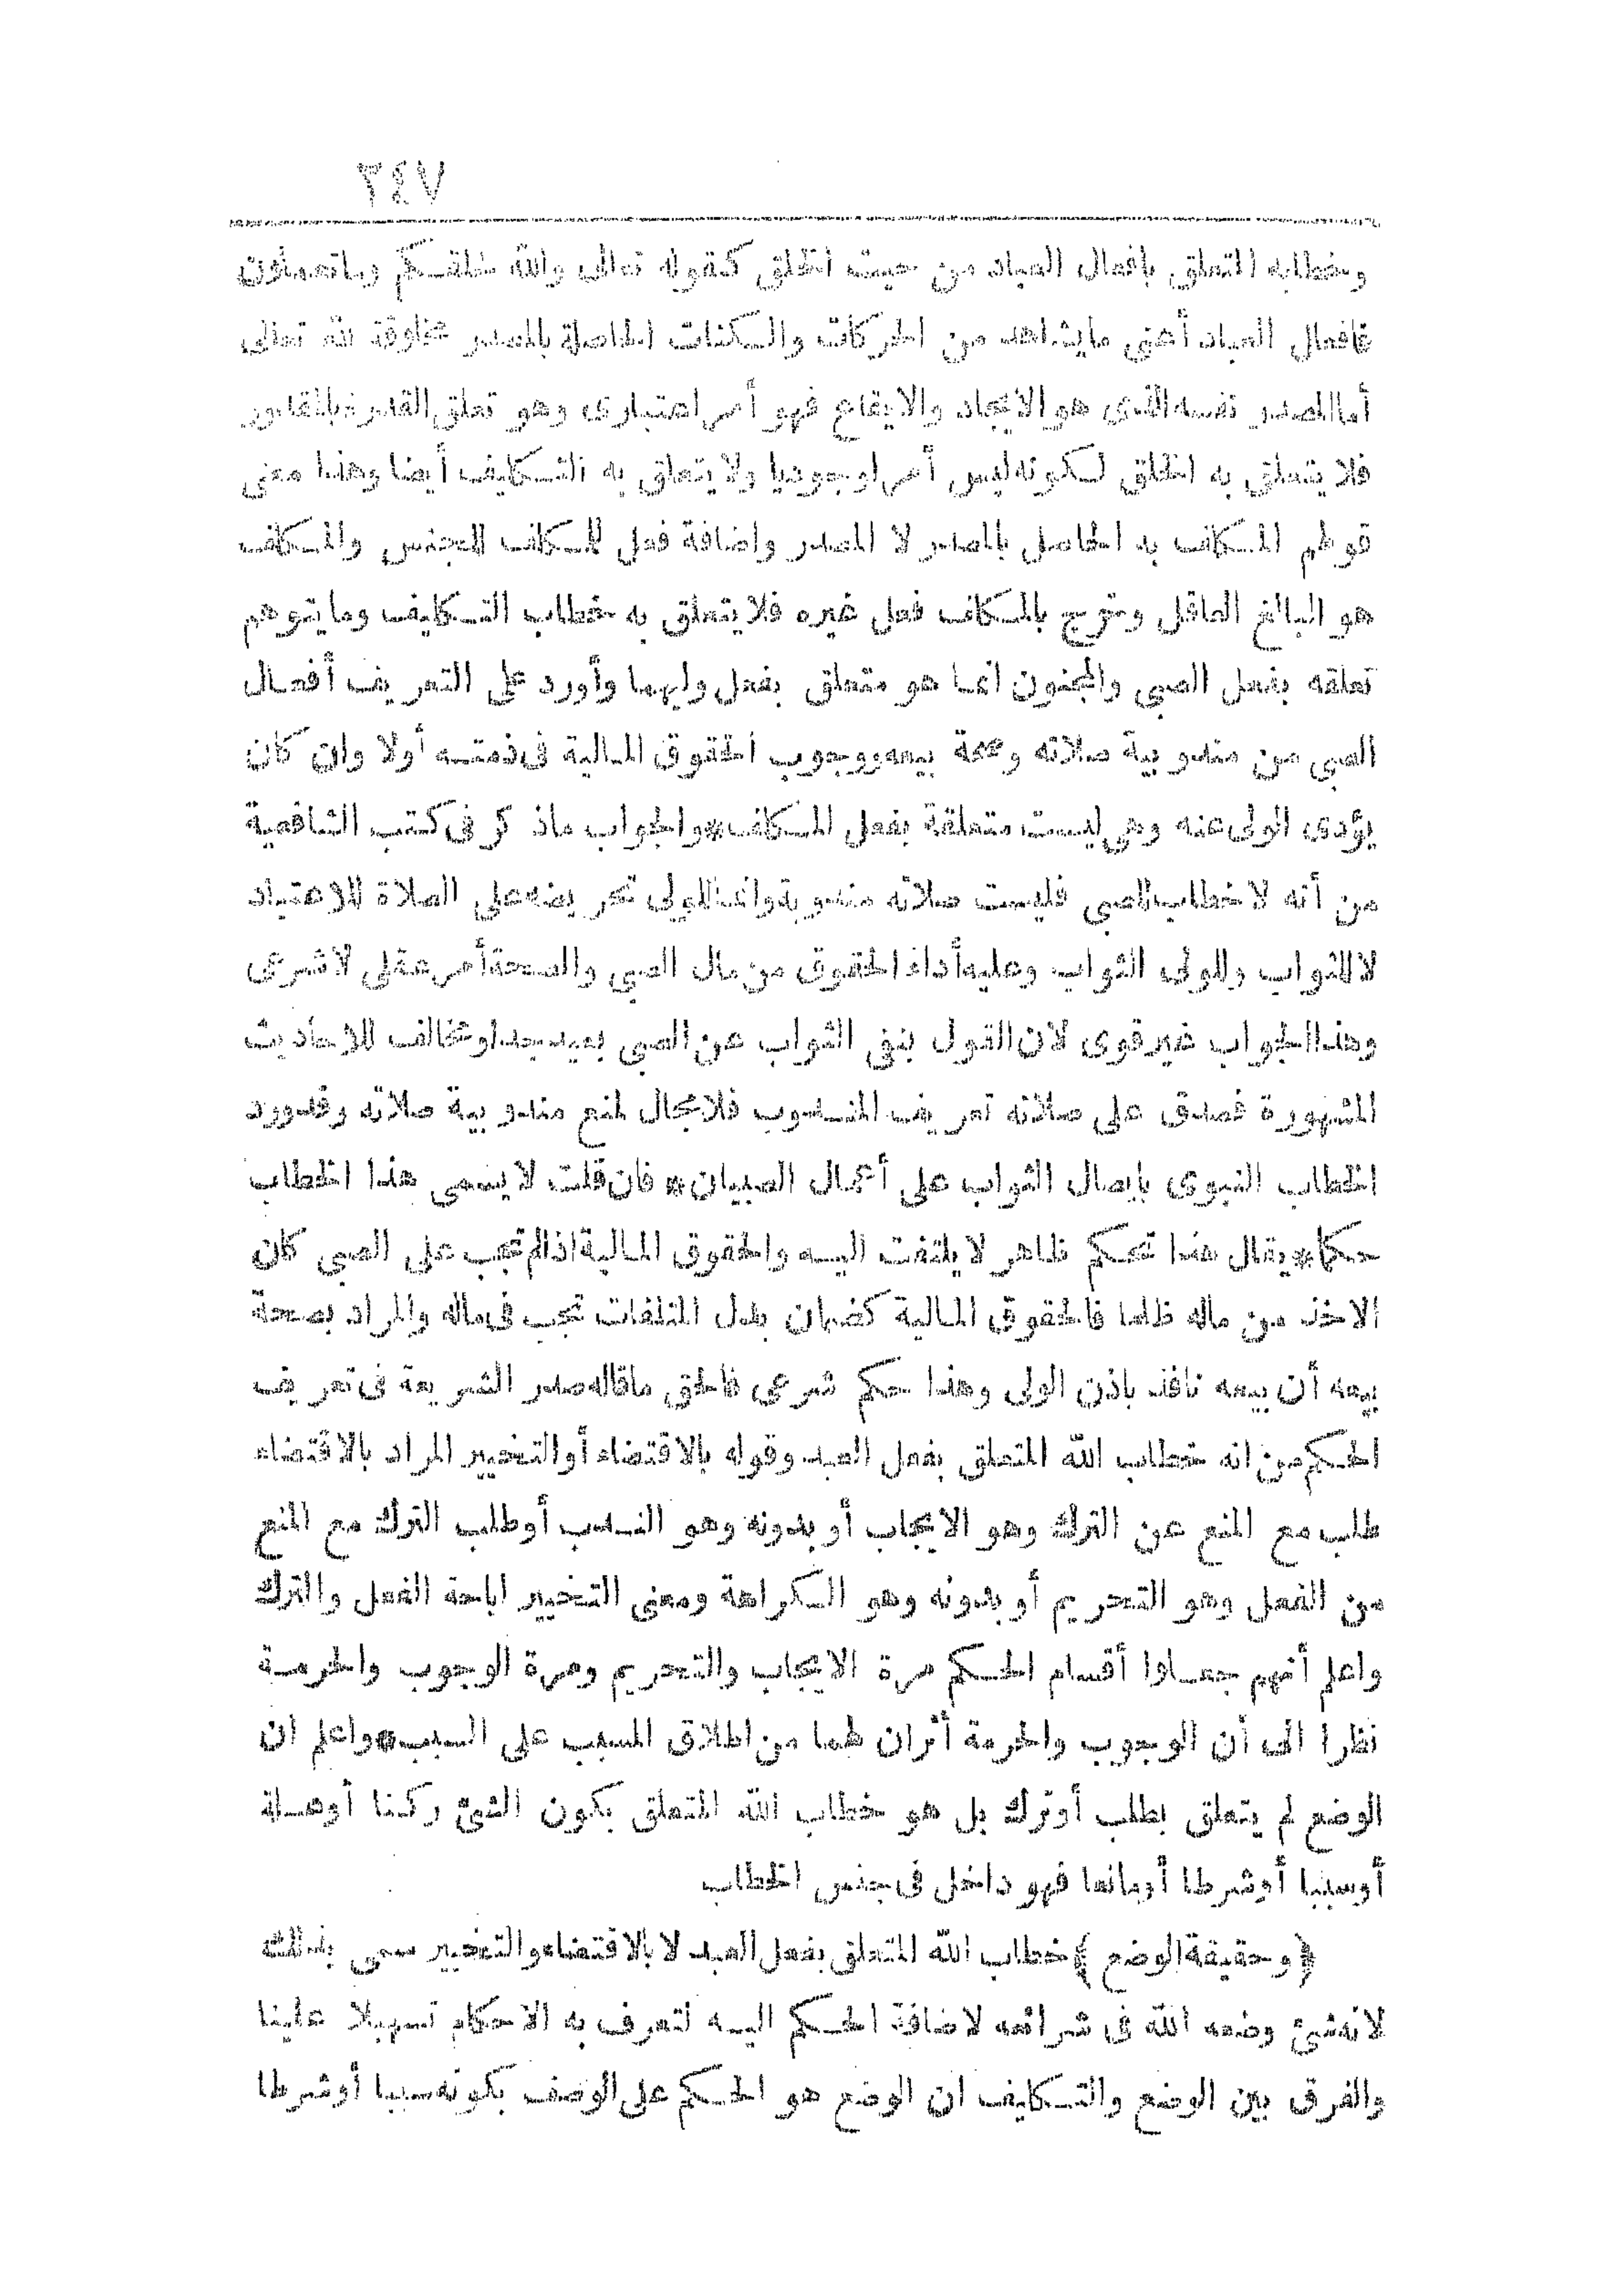 ٣٤٧
وخطابه المتعلق بافعال العباد من حيث الخلق كقوله تعالى والله خلقكم وماتعملون
فافعال العباد أعنى مايشاهد من الحركات والسكنات الحاصلة بالمصدر مخلوقة لله تعالى
أماالمصدر نفسه الذى هو الايجاد والايقاع فهو أمر اعتبارى وهو تعلق القدرة بالمقدور
فلا يتعلق به الخلق لكونه ليس أمرا وجوديا ولا يتعلق به التكليف أيضا وهذا معنى
قولهم المكلف به الحاصل بالمصدر لا المصدر واضافة فعل للمكلف للجنس والمكلف
هو البالغ العاقل وخرج بالمكلف فعل غيره فلا يتعلق به خطاب التكليف وما يتوهم
تعلقه بفعل الصبى والمجنون انما هو متعلق بفعل وليهما وأورد على التعريف أفعال
الصبى من مندوبية صلاته وصحة بيعه ووجوب الحقوق المالية فى ذمته أولا وان كان
يؤدى الولى عنه وهى ليست متعلقة بفعل المكلف*والجواب ماذكر فى كتب الشافعية
من أنه لا خطاب للصبى فليست صلاته مندوبة وانما للولى تحريضه على الصلاة للاعتياد
لا للثواب وللولى الثواب وعليه أداء الحقوق من مال الصبى والصحة أمر عقلى لاشرعى
وهذا الجواب غير قوى لان القول بنفى الثواب عن الصبى بعيد جدا ومخالف للاحاديث
المشهورة فصدق على صلاته تعريف المندوب فلا مجال لمنع مندوبية صلاته وقدورد
الخطاب النبوى بايصال الثواب على أعمال الصبيان* فان قلت لا يسمى هذا الخطاب
حكما*يقال هذا تحكم ظاهر لا يلتفت اليه والحقوق المالية اذا لم تجب على الصبى كان
الاخذ من ماله ظلما فالحقوق المالية كضمان بدل المتلفات تجب فى ماله والمراد بصحة
بيعه أن بيعه نافذ باذن الولى وهذا حكم شرعى فالحق ماقاله صدر الشريعة فى تعريف
الحكم من انه خطاب الله المتعلق بفعل العبد وقوله بالاقتضاء أوالتخيير المراد بالاقتضاء
طلب مع المنع عن الترك وهو الايجاب أو بدونه وهو الندب أوطلب الترك مع المنع
من الفعل وهو التحريم أو بدونه وهو الكراهة ومعنى التخيير اباحة الفعل والترك
واعلم أنهم جعلوا أقسام الحكم مرة الايجاب والتحريم ومرة الوجوب والحرمة
نظرا الى أن الوجوب والحرمة أثران لهما من اطلاق المسبب على السبب*واعلم ان
الوضع لم يتعلق بطلب أوترك بل هو خطاب الله المتعلق بكون الشئ ركنا أوعلة
أوسببا أوشرطا أومانعا فهو داخل فى جنس الخطاب
﴿وحقيقة الوضع﴾ خطاب الله المتعلق بفعل العبد لا بالاقتضاء والتخيير سمى بذلك
لانه شئ وضعه الله فى شرائعه لاضافة الحكم اليه لتعرف به الاحكام تسهيلا علينا
والفرق بين الوضع والتكليف ان الوضع هو الحكم على الوصف بكونه سببا أوشرطا